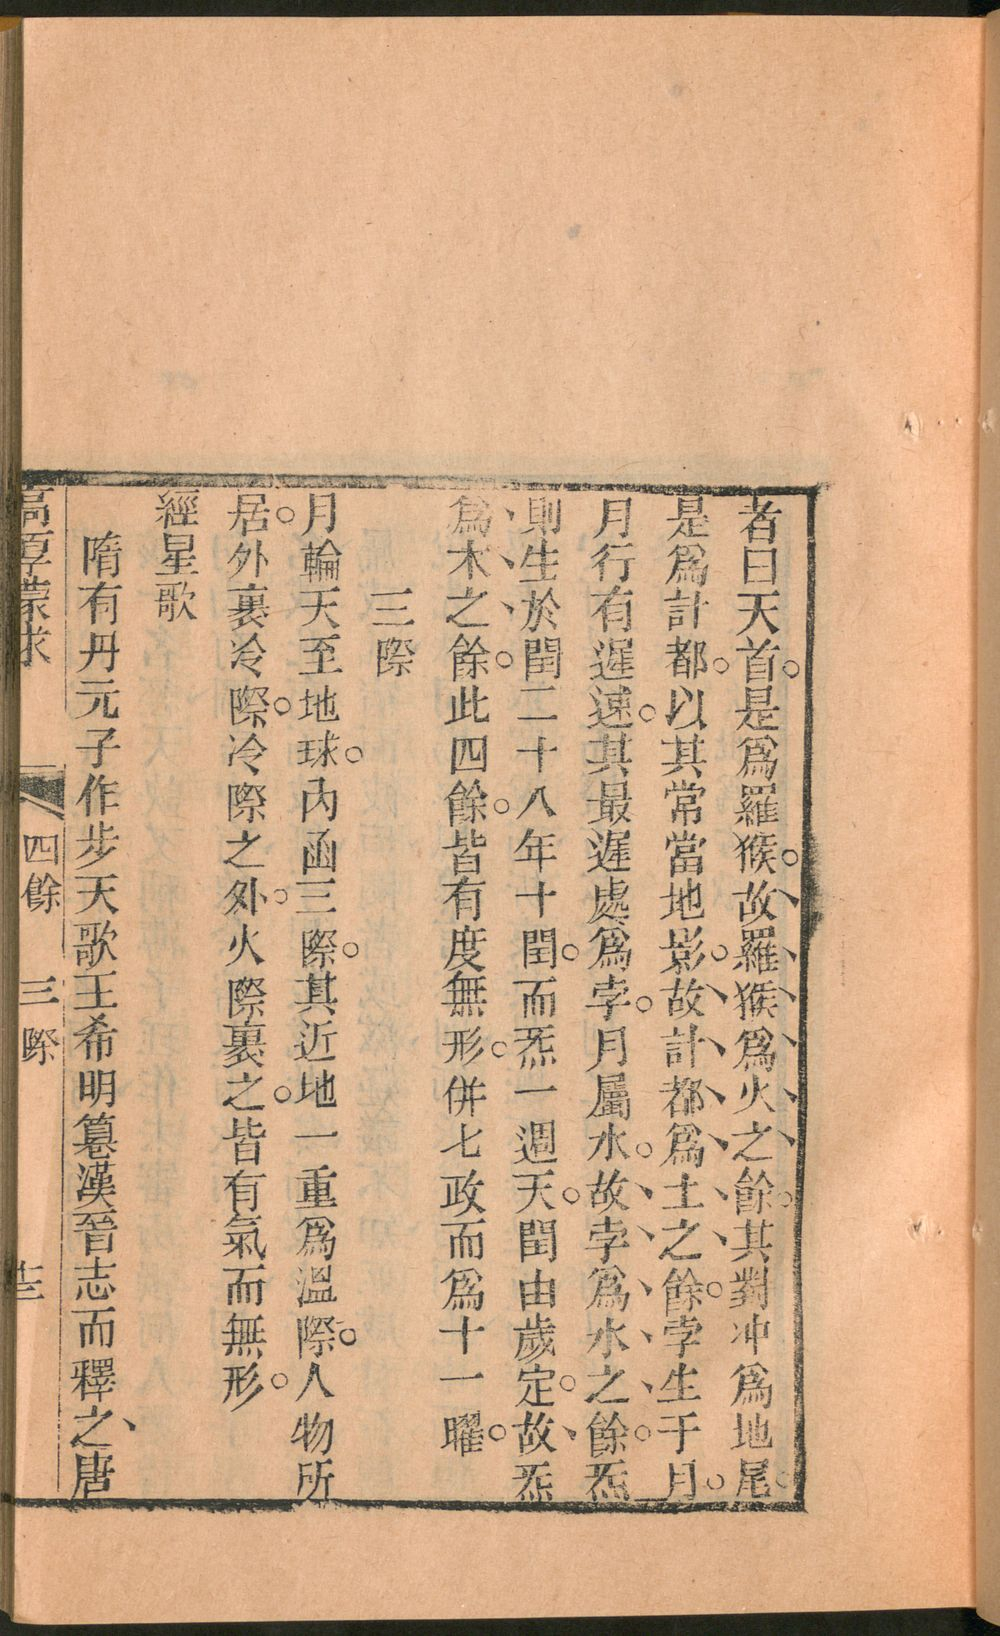 者曰天首是爲羅㬋故羅㬋爲火之餘其對冲爲地尾
是爲計都以其常當地影故計都爲土之餘孛生于月
月行有遲速其最遲處爲孛月屬水故孛爲水之餘炁
則生於閏二十八年十閏而炁一週天閏由歲定故炁
爲木之餘此四餘皆有度無形併七政而爲十一曜
三際
月輪天至地球內函三際其近地一重爲溫際人物所
居外裹冷際冷際之外火際裹之皆有氣而無形
經星歌
隋有丹元子作步天歌王希明簒漢晉志而釋之唐
高厚蒙求
四餘
三際
十三